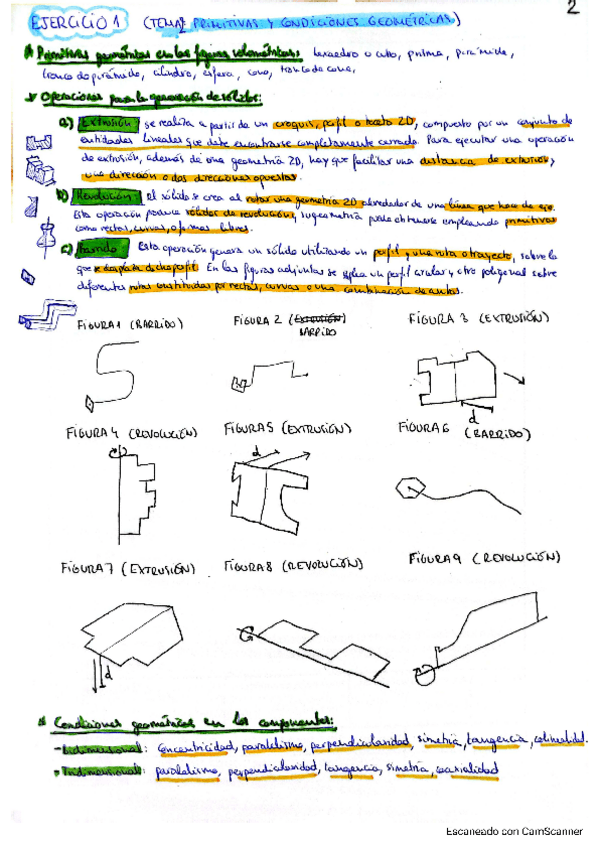 2
EJERCICIO 1 (TEMA 2 PRIMITIVAS Y CONDICIONES GEOMÉTRICAS)
Primitivas geométricas en las figuras volumétricas: hexaedro o cubo, prisma, pirámide,
tronco de pirámide, cilindro, esfera, cono, tronco de cono,
Operaciones para la generación de sólidos:
a) Extrusión: se realiza a partir de un croquis, perfil o boceto 2D, compuesto por un conjunto de
entidades lineales que debe encontrarse completamente cerrado. Para ejecutar una operación
de extrusión, además de una geometría 2D, hay que facilitar una distancia de extrusión,
una dirección o dos direcciones opuestas.
b) Revolución: El sólido se crea al rotar una geometría 2D alrededor de una línea que hace de eje.
Esta operación produce sólidos de revolución, su geometría puede obtenerse empleando primitivas
como rectas, curvas, o formas libres.
c) Barrido: Esta operación genera un sólido utilizando un perfil y una ruta o trayecto, sobre la
que se desplaza dicho perfil. En las figuras adjuntas se aplica un perfil circular y otro poligonal sobre
diferentes rutas constituidas por rectas, curvas o una combinación de ambas.
FIGURA 1 (BARRIDO) FIGURA 2 (EXTRUSIÓN) FIGURA 3 (EXTRUSIÓN)
BARRIDO
d
FIGURA 4 (REVOLUCIÓN) FIGURA 5 (EXTRUSIÓN) FIGURA 6 (BARRIDO)
d
FIGURA 7 (EXTRUSIÓN) FIGURA 8 (REVOLUCIÓN) FIGURA 9 (REVOLUCIÓN)
d
Condiciones geométricas en los componentes:
- Bidimensional: concentricidad, paralelismo, perpendicularidad, simetría, tangencia, colinealidad.
- Tridimensional: paralelismo, perpendicularidad, tangencia, simetría, coaxialidad
Escaneado con CamScanner